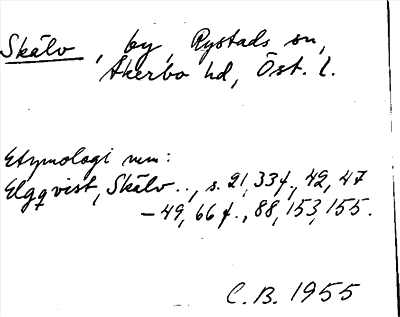 Skälv, by, Rystads sn,
Åkerbo hd, Öst. l.
Etymologi mm:
Elgqvist, Skälv.., s. 21, 33f., 42, 47
-49, 66f., 88, 153, 155.
C.B. 1955